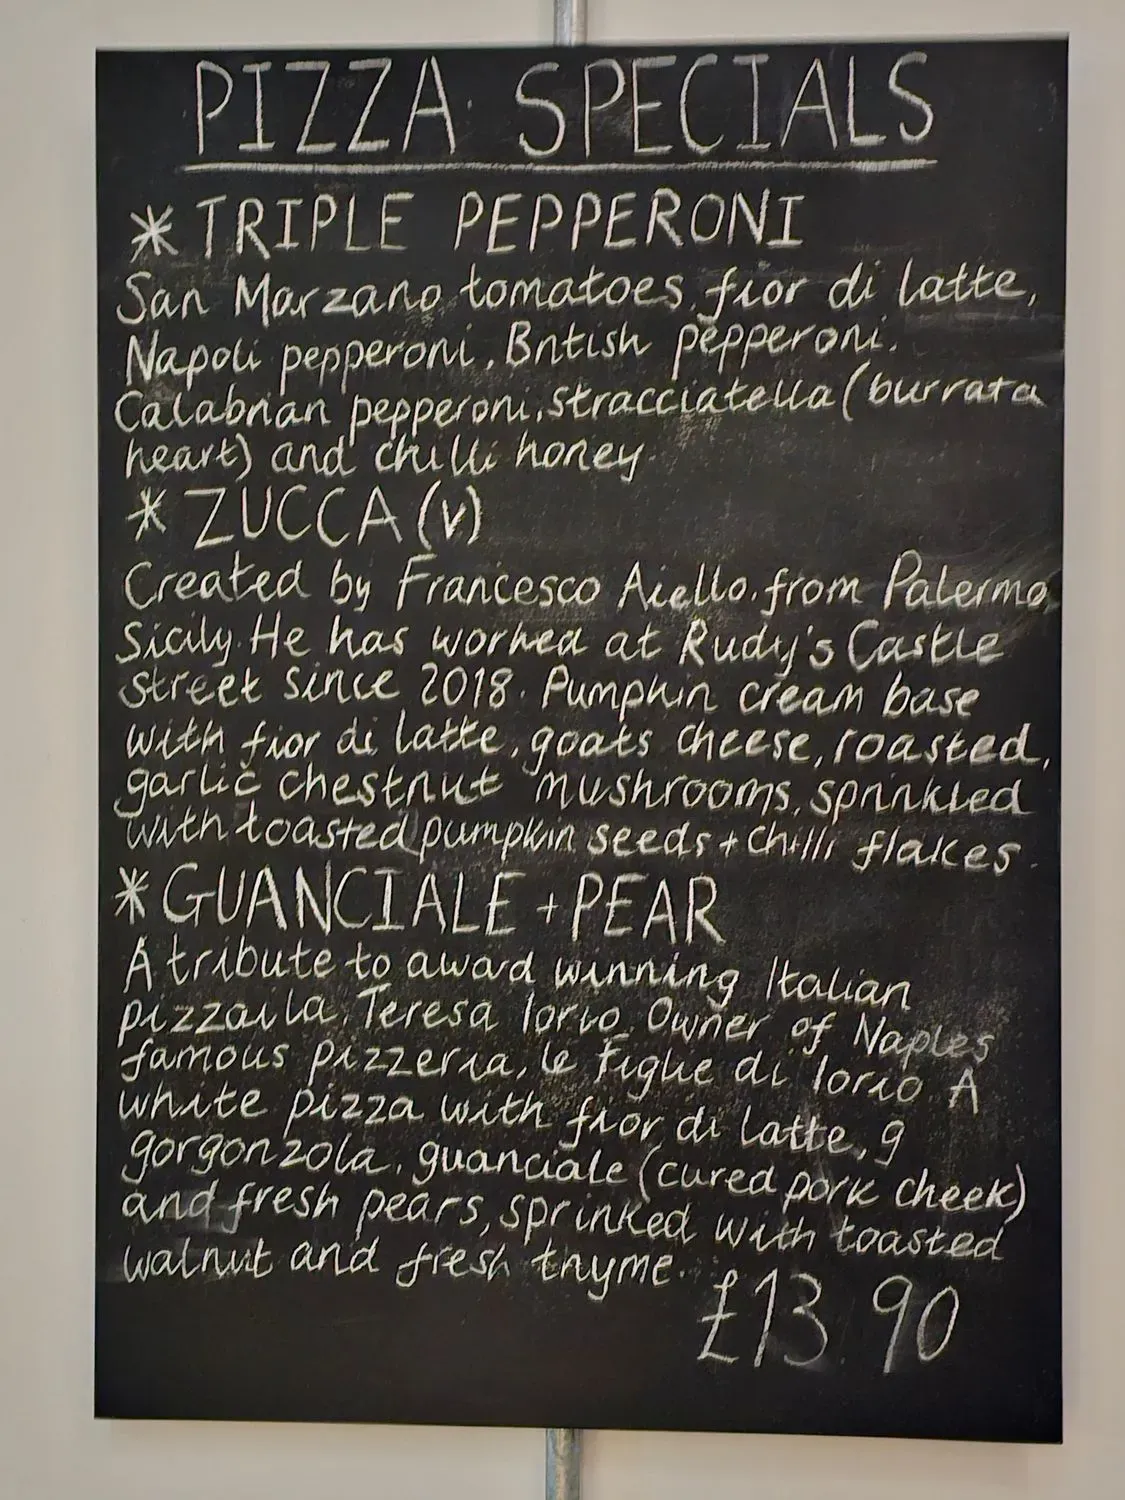 PIZZA SPECIALS
* TRIPLE PEPPERONI
San Marzano tomatoes, fior di latte,
Napoli pepperoni, British pepperoni,
Calabrian pepperoni, stracciatella (burrata
heart) and chilli honey.
* ZUCCA (v)
Created by Francesco Aiello, from Palermo,
Sicily. He has worked at Rudy's Castle
street since 2018. Pumpkin cream base
with fior di latte, goats cheese, roasted,
garlic chestnut mushrooms, sprinkled
with toasted pumpkin seeds + chilli flakes.
* GUANCIALE + PEAR
A tribute to award winning Italian
pizzaila, Teresa Iorio. Owner of Naples
famous pizzeria, le Figlie di Iorio. A
white pizza with fior di latte, g
gorgonzola, guanciale (cured pork cheek)
and fresh pears, sprinked with toasted
walnut and fresh thyme.
£13.90